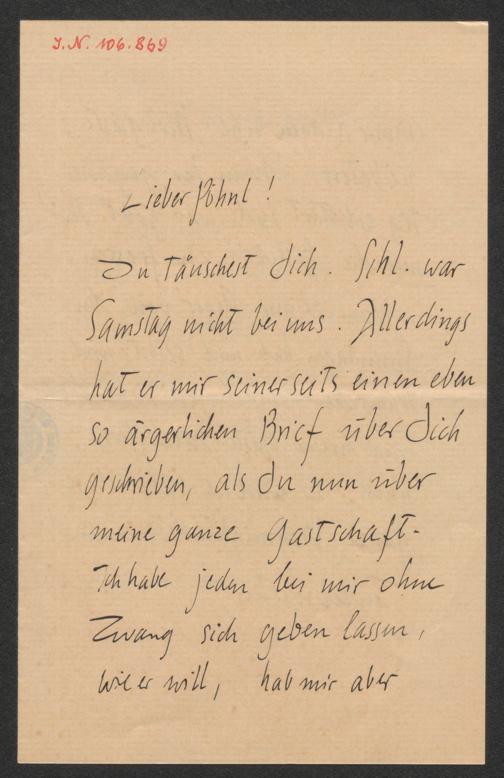 J.N. 106.869
Lieber Pöhnl!
Du täuschest dich. Schl. war
Samstag nicht bei uns. Allerdings
hat er mir seinerseits einen eben
so ärgerlichen Brief über dich
geschrieben, als du nun über
meine ganze Gastschaft.
Ich habe jeden bei mir ohne
Zwang sich geben lassen,
wie er will, hab mir aber